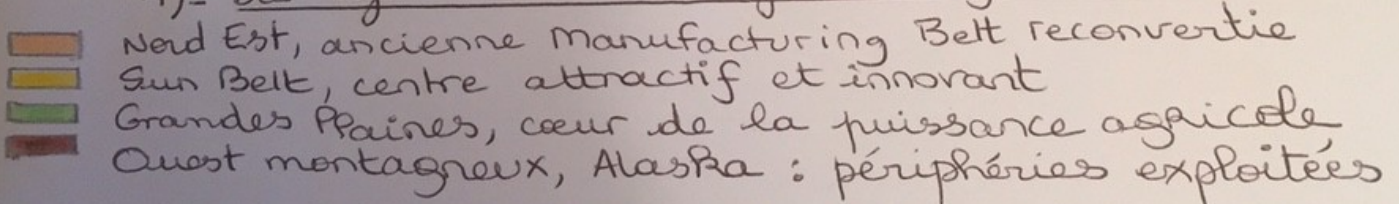 Nord Est, ancienne Manufacturing Belt reconvertie
Sun Belt, centre attractif et innovant
Grandes Plaines, cœur de la puissance agricole
Ouest montagneux, Alaska : périphéries exploitées